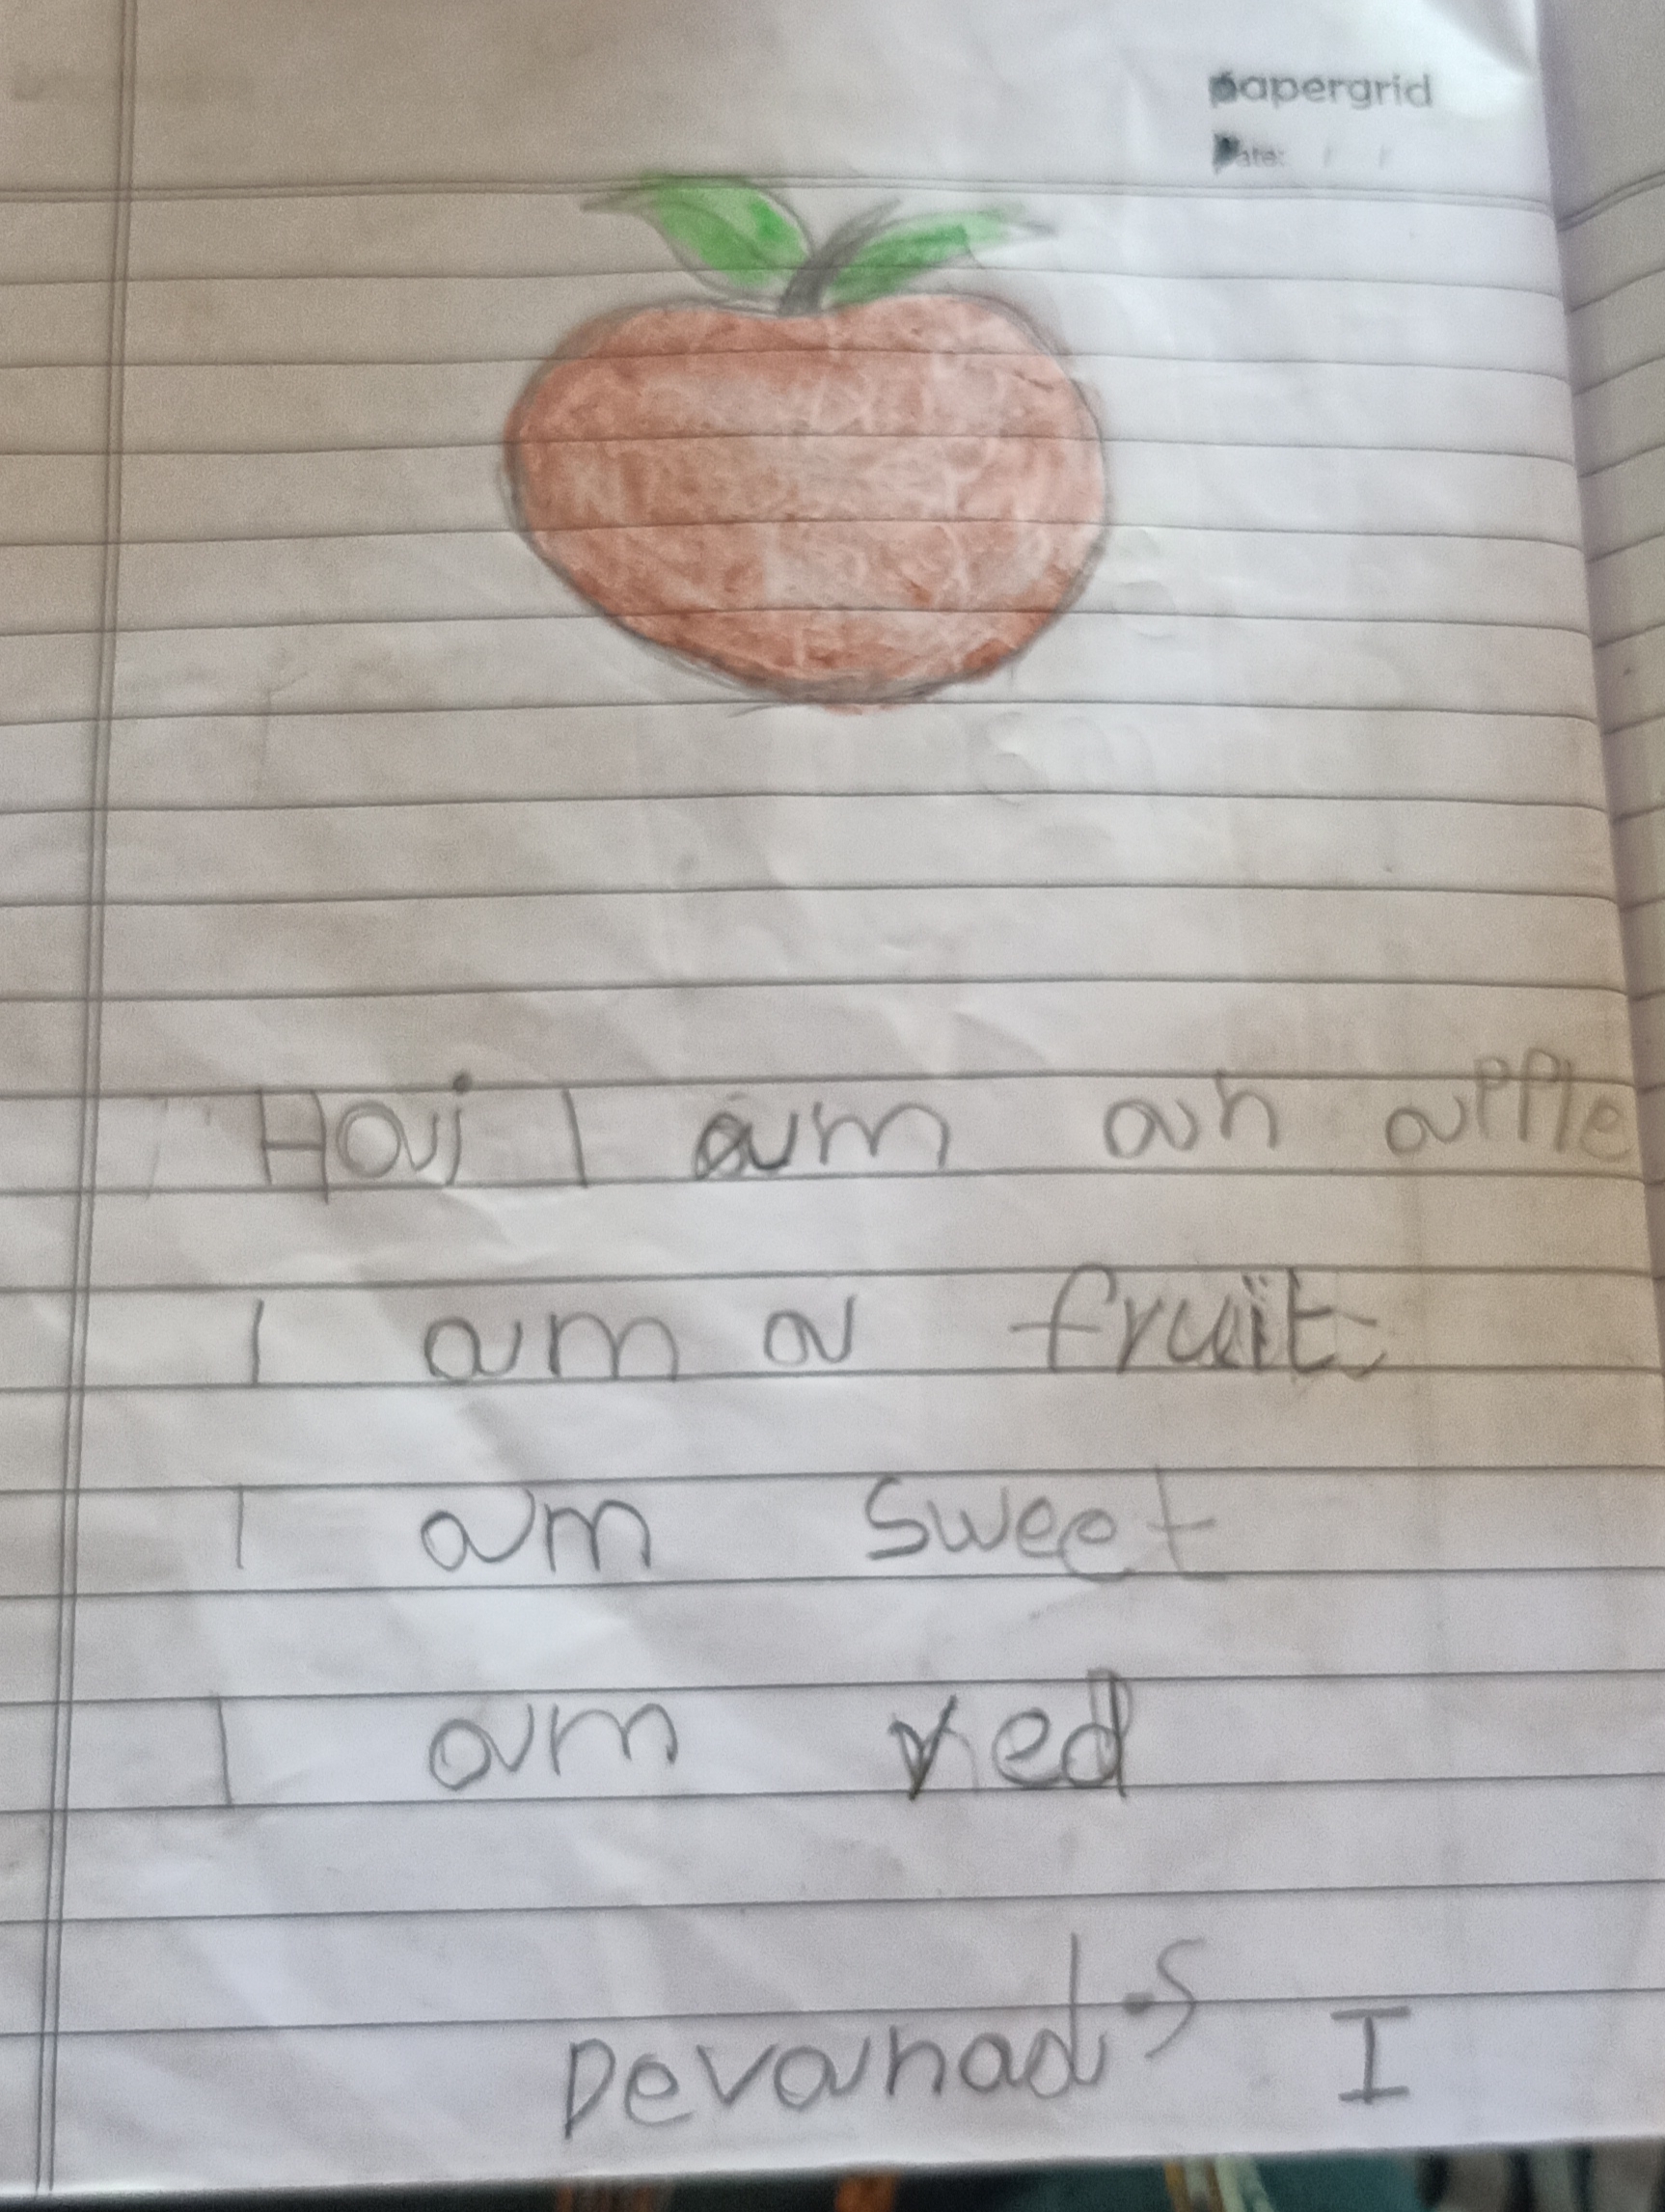 papergrid
Date: / /
Hai I am an apple
I am a fruit
I am sweet
I am red
Devanad.S I